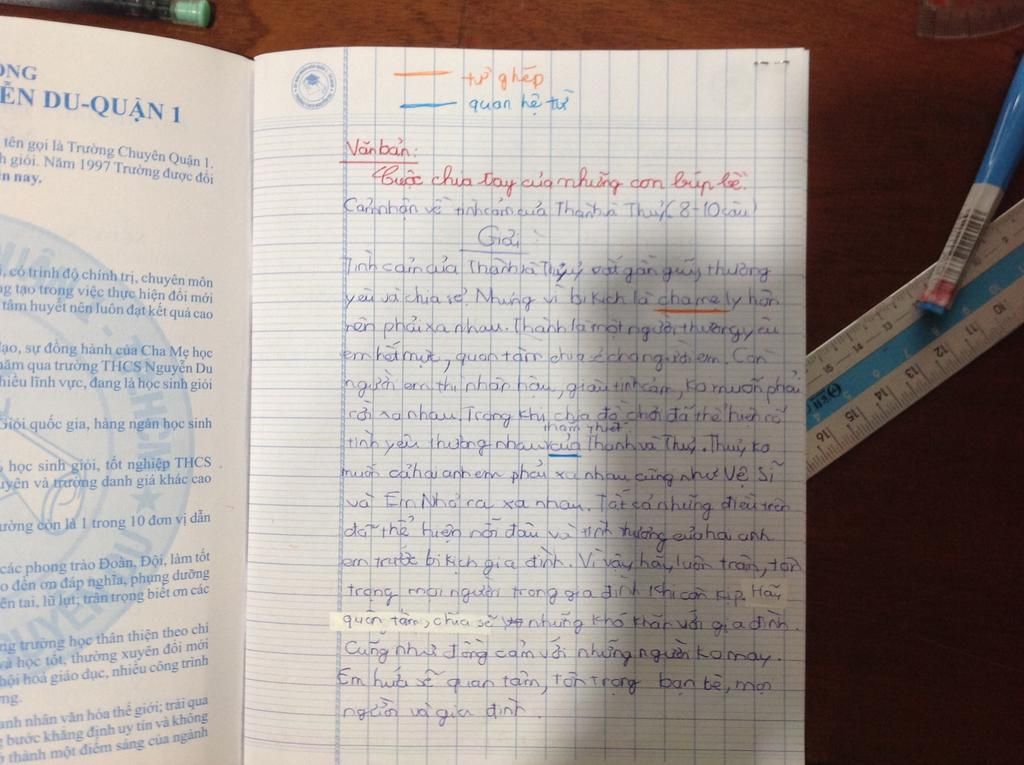 ONG
ỄN DU-QUẬN 1
tên gọi là Trường Chuyên Quận 1.
h giỏi. Năm 1997 Trường được đổi
ến nay.
i, có trình độ chính trị, chuyên môn
ng tạo trong việc thực hiện đổi mới
tâm huyết nên luôn đạt kết quả cao
đạo, sự đồng hành của Cha Mẹ học
năm qua trường THCS Nguyễn Du
hiều lĩnh vực, đang là học sinh giỏi
Giỏi quốc gia, hàng ngàn học sinh
học sinh giỏi, tốt nghiệp THCS
uyên và trường danh giá khác cao
ường còn là 1 trong 10 đơn vị dẫn
các phong trào Đoàn, Đội, làm tốt
o đền ơn đáp nghĩa, phụng dưỡng
ên tai, lũ lụt; trân trọng biết ơn các
ng trường học thân thiện theo chỉ
và học tốt, thường xuyên đổi mới
hội hoá giáo dục, nhiều công trình
ng.
anh nhân văn hóa thế giới; trải qua
g bước khẳng định uy tín và không
ở thành một điểm sáng của ngành
từ ghép
quan hệ từ
Văn bản:
Cuộc chia tay của những con búp bê.
Cảm nhận về tình cảm của Thành và Thuỷ (8-10 câu)
Giải:
Tình cảm của Thành và Thuỷ rất gần gũi, thương
yêu và chia sẻ. Nhưng vì bi kịch là cha mẹ ly hôn
nên phải xa nhau. Thành là một người thương yêu
em hết mực, quan tâm chia sẻ cho người em. Còn
người em thì nhân hậu, giàu tình cảm, ko muốn phải
rời xa nhau. Trong khi chia đồ chơi đã thể hiện rõ
tình yêu thương nhau thắm thiết của Thành và Thuỷ. Thuỷ ko
muốn cả hai anh em phải xa nhau cũng như Vệ Sĩ
và Em Nhỏ ra xa nhau. Tất cả những điều trên
đã thể hiện nỗi đau và tình thương của hai anh
em trước bi kịch gia đình. Vì vậy, hãy luôn trân, tôn
trọng mọi người trong gia đình khi còn kịp. Hãy
quan tâm, chia sẻ những khó khăn với gia đình.
Cũng như đồng cảm với những người ko may.
Em hứa sẽ quan tâm, tôn trọng bạn bè, mọi
người và gia đình.